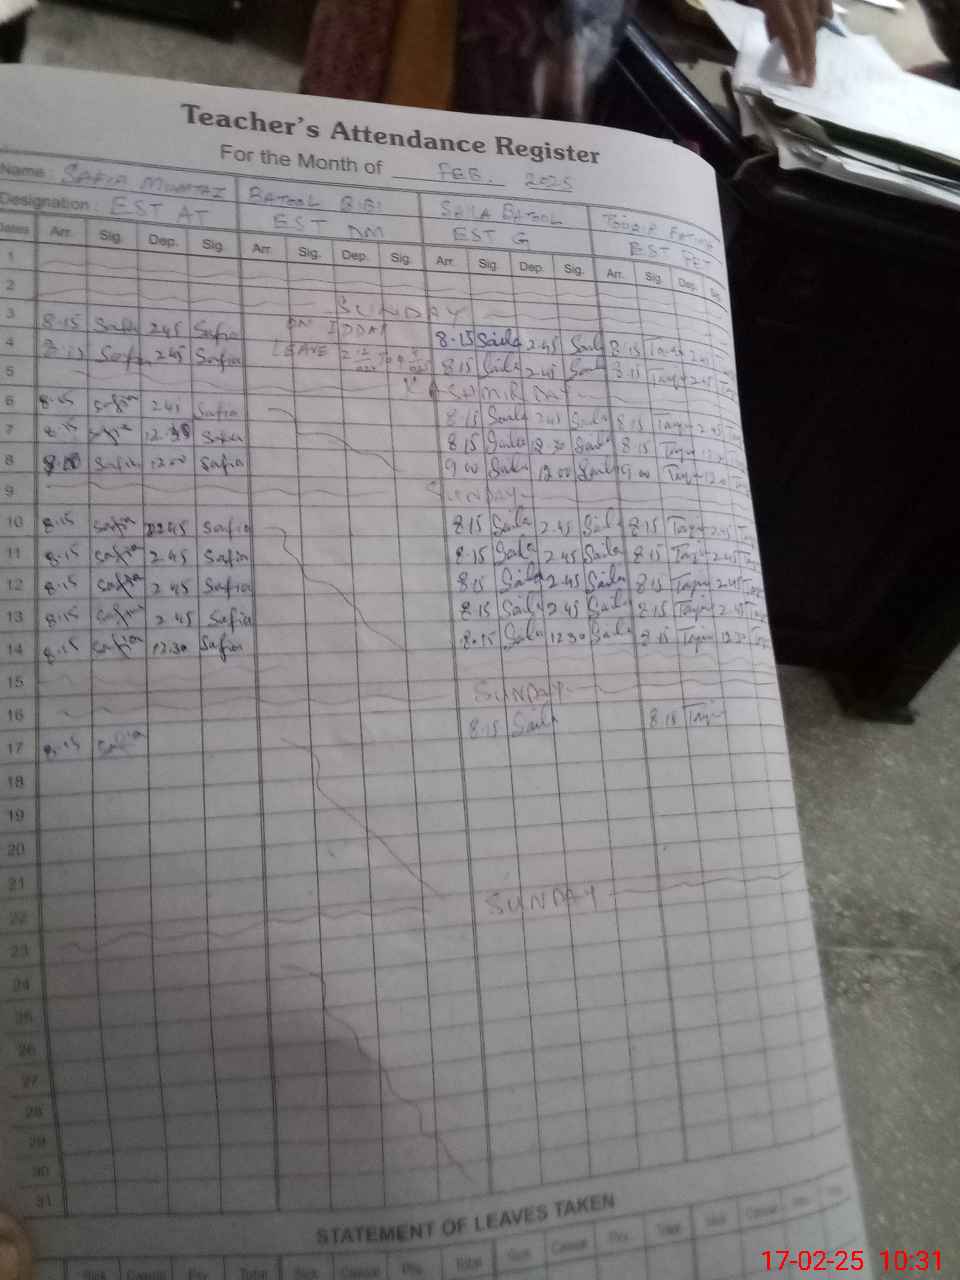 Teacher's Attendance Register
For the Month of FEB. 2025
Name: SAFIA MUMTAZ BATOOL BIBI SAILA BATOOL
Designation: EST AT EST DM EST G EST PET
Dates Arr. Sig. Dep. Sig. Arr. Sig. Dep. Sig. Arr. Sig. Dep. Sig. Arr. Sig. Dep. Sig.
1
2 SUNDAY
3 8.15 Safia 2.45 Safia ON IDDAT 8.15 Saila 2.45 Saila 8.15
4 8.15 Safia 2.45 Safia LEAVE 8.15 Saila 2.45 8.15
5 KASHMIR DAY
6 8.15 Safia 2.45 Safia 8.15 Saila 2.45 Saila 8.15 2.45
7 8.15 12.30 Safia 8.15 Saila 12.30 Saila 8.15
8 Safia 12.00 Safia 9.00 Saila 12.00 Saila 9.00
9 SUNDAY
10 8.15 Safia 2.45 Safia 8.15 Saila 2.45 Saila 8.15 2.45
11 8.15 Safia 2.45 Safia 8.15 Saila 2.45 Saila 8.15 2.45
12 8.15 Safia 2.45 Safia 8.15 Saila 2.45 Saila 8.15 2.45
13 8.15 Safia 2.45 Safia 8.15 Saila 2.45 Saila 8.15 2.45
14 8.15 Safia 12.30 Safia 8.15 Saila 12.30 Saila 8.15 12.30
15
16 SUNDAY
17 8.15 Safia 8.15 Saila 8.15
18
19
20
21
22
23 SUNDAY
24
25
26
27
28
29
30
31
STATEMENT OF LEAVES TAKEN
Sick Casual Prv. Total Sick Casual Prv. Total Sick Casual Prv. Total Sick Casual Prv.
17-02-25 10:31